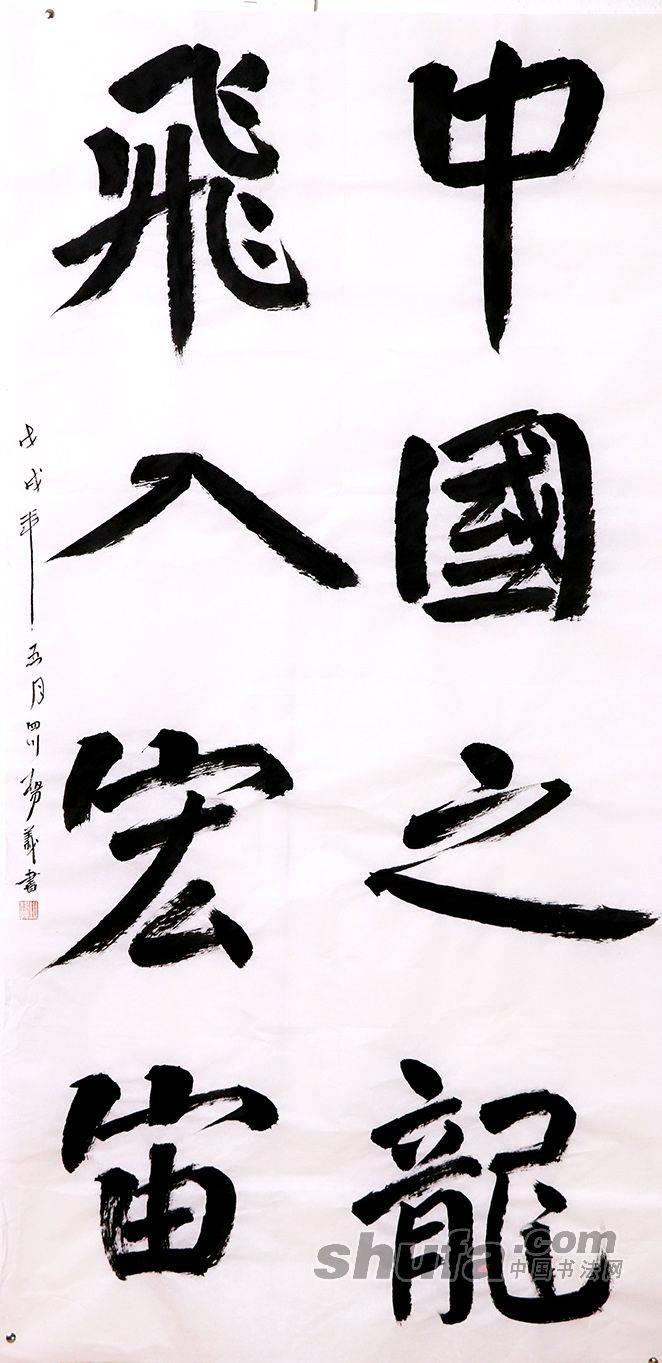 中國之龍
飛入宏宙
戊戌年五月四川義書
shufa.com
中国书法网